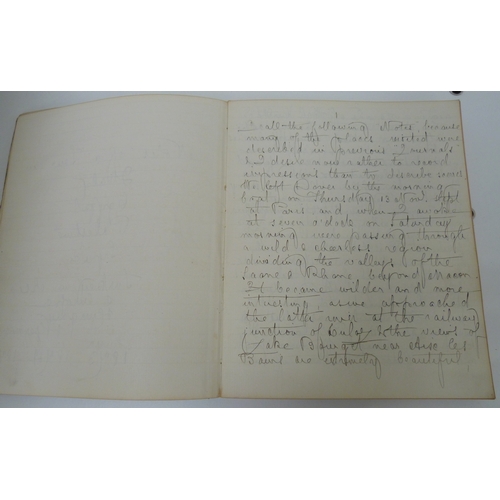 1
I call the following Notes because
many of the places visited were
described in previous Journals
& I desire now rather to record
impressions than to describe scenes
We left Dover by the morning
boat on Thursday 13 slept
at Paris and when I awoke
at seven o'clock on Saturday
morning were passing through
a wild & cheerless region
dividing the valleys of the
Saone & Rhone, beyond Macon
It became wilder and more
interesting as we approached
the latter river at the railway
junction of Culoz & the views of
Lake Bourget near Aix les
Bains are extremely beautiful,